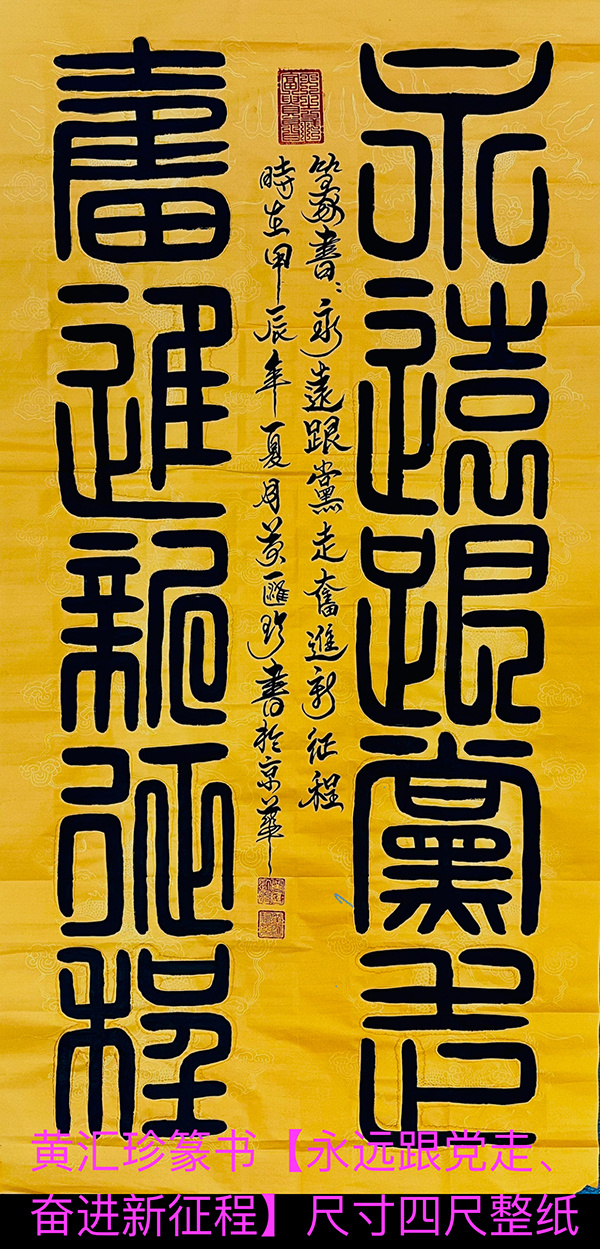 永遠跟黨走
篆書：永遠跟黨走奮進新征程
時在甲辰年夏月黃匯珍書於京華
奮進新征程
黄汇珍篆书【永远跟党走、
奋进新征程】尺寸四尺整纸